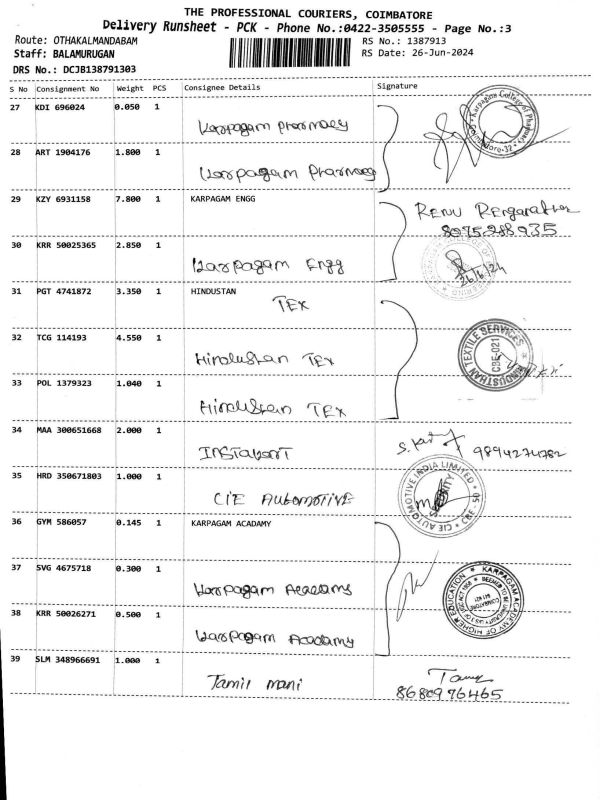 THE PROFESSIONAL COURIERS, COIMBATORE
Delivery Runsheet - PCK - Phone No.:0422-3505555 - Page No.:3
Route: OTHAKALMANDABAM
RS No.: 1387913
Staff: BALAMURUGAN
RS Date: 26-Jun-2024
DRS No.: DCJB138791303
S No Consignment No Weight PCS Consignee Details Signature
27 KDI 696024 0.050 1
Karpagam pharmacy
28 ART 1904176 1.800 1
Karpagam Pharmacy
29 KZY 6931158 7.800 1 KARPAGAM ENGG
RENU
8075288935
30 KRR 50025365 2.850 1
Karpagam Engg
26/6/24
31 PGT 4741872 3.350 1 HINDUSTAN
TEX
32 TCG 114193 4.550 1
Hindustan TEX
HINDUSTHAN TEXTILE SERVICES
CBE-021
33 POL 1379323 1.040 1
Hindustan TEX
34 MAA 300651668 2.000 1
INSTAKART
9894274782
35 HRD 350671803 1.000 1
CIE AUTOMOTIVE
CIE AUTOMOTIVE INDIA LIMITED
SECURITY
CBE - 50
36 GYM 586057 0.145 1 KARPAGAM ACADAMY
37 SVG 4675718 0.300 1
Karpagam Academy
KARPAGAM ACADEMY OF HIGHER EDUCATION
38 KRR 50026271 0.500 1
Karpagam Academy
39 SLM 348966691 1.000 1
Tamil mani
8680976465